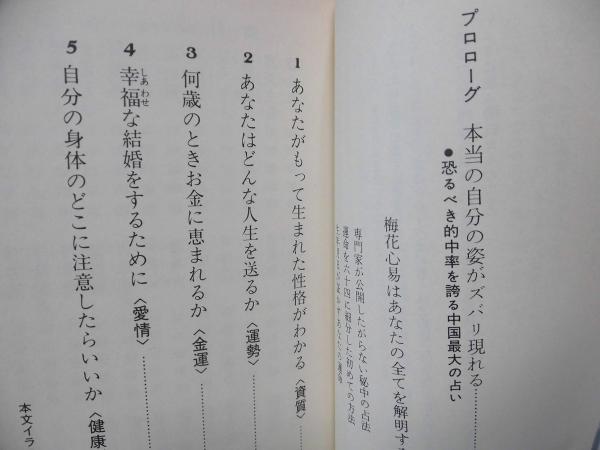 プロローグ 本当の自分の姿がズバリ現れる
●恐るべき的中率を誇る中国最大の占い
梅花心易はあなたの全てを解明する
専門家が公開したがらない秘中の占法
運命を六十四に細分した初めての方法
1 あなたがもって生まれた性格がわかる〈資質〉
2 あなたはどんな人生を送るか〈運勢〉
3 何歳のときお金に恵まれるか〈金運〉
4 幸福な結婚をするために〈愛情〉
5 自分の身体のどこに注意したらいいか〈健康
本文イラ